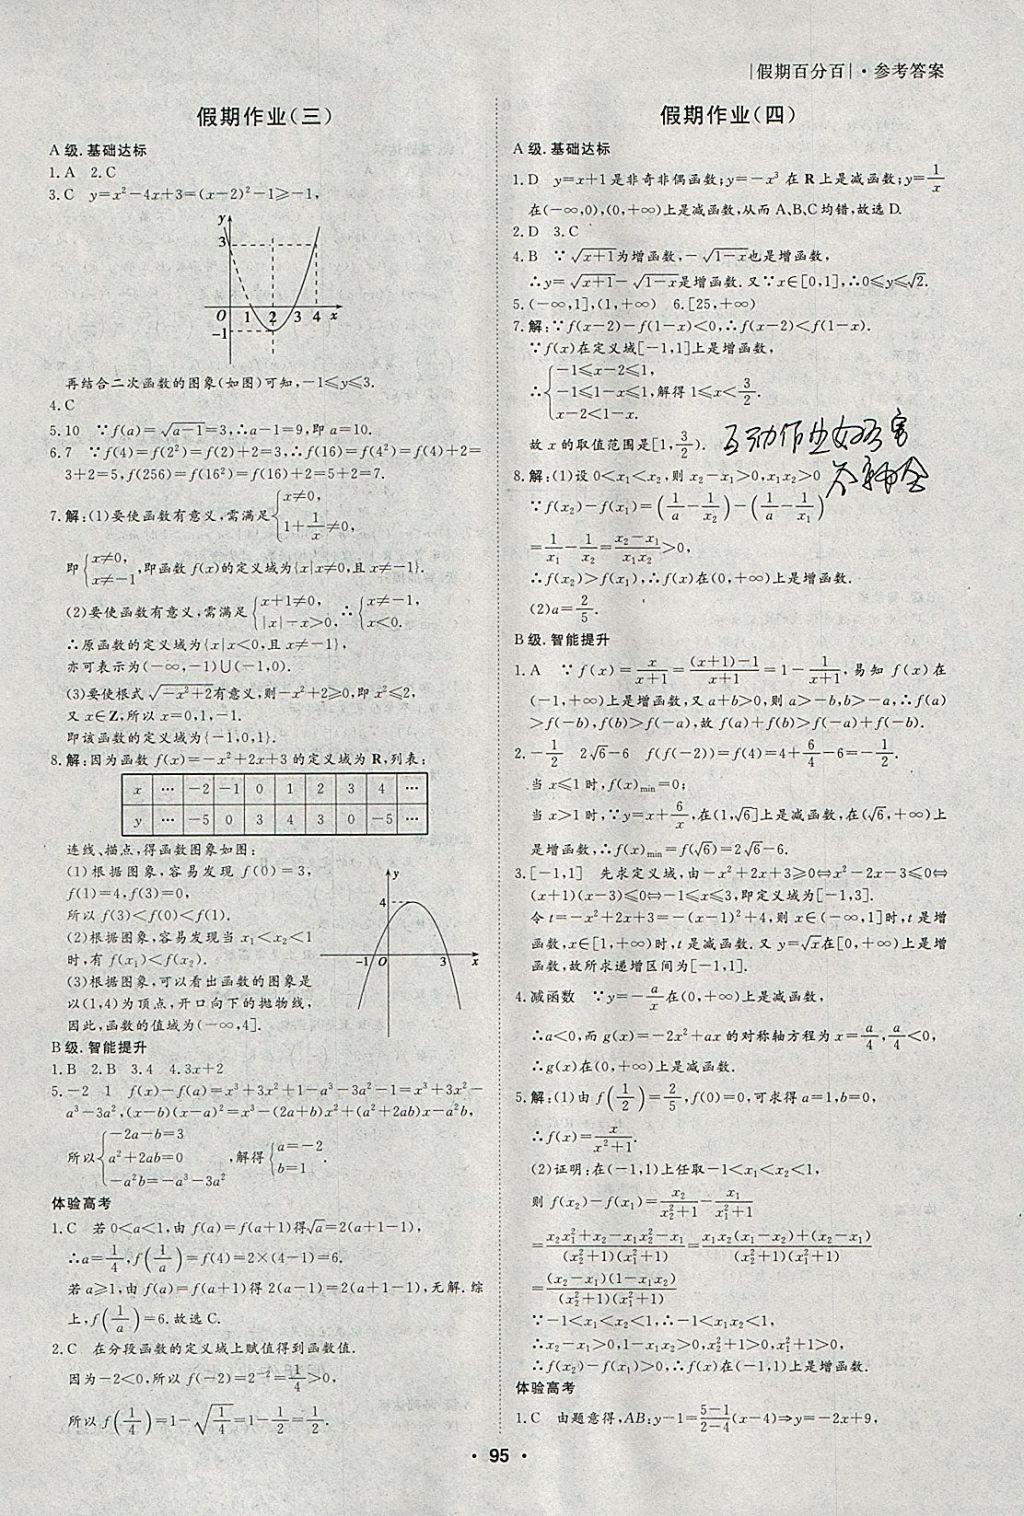 |假期百分百|·参考答案
假期作业(三)
A级.基础达标
1.A 2.C
3.C y=x²-4x+3=(x-2)²-1⩾-1,
y
3
O 1 2 3 4 x
-1
再结合二次函数的图象(如图)可知,-1⩽y⩽3.
4.C
5.10 ∵f(a)=√(a-1)=3,∴a-1=9,即a=10.
6.7 ∵f(4)=f(2²)=f(2)+2=3,∴f(16)=f(4²)=f(4)+2=
3+2=5,f(256)=f(16²)=f(16)+2=5+2=7.
7.解:(1)要使函数有意义,需满足{x≠0, 1+1/x≠0,
即{x≠0, x≠-1,即函数f(x)的定义域为{x|x≠0,且x≠-1}.
(2)要使函数有意义,需满足{x+1≠0, |x|-x>0, ∴{x≠-1, x<0.
∴原函数的定义域为{x|x<0,且x≠-1}.
亦可表示为(-∞,-1)∪(-1,0).
(3)要使根式√(-x²+2)有意义,则-x²+2⩾0,即x²⩽2,
又x∈Z,所以x=0,1,-1.
即该函数的定义域为{-1,0,1}.
8.解:因为函数f(x)=-x²+2x+3的定义域为R,列表:
x … -2 -1 0 1 2 3 4 …
y … -5 0 3 4 3 0 -5 …
连线、描点,得函数图象如图:
(1)根据图象,容易发现f(0)=3,
f(1)=4,f(3)=0,
所以f(3)<f(0)<f(1).
(2)根据图象,容易发现当x₁<x₂<1
时,有f(x₁)<f(x₂).
(3)根据图象,可以看出函数的图象是
以(1,4)为顶点,开口向下的抛物线,
因此,函数的值域为(-∞,4].
y
4
-1 O 3 x
B级.智能提升
1.B 2.B 3.4 4.3x+2
5.-2 1 f(x)-f(a)=x³+3x²+1-a³-3a²-1=x³+3x²-
a³-3a²,(x-b)(x-a)²=x³-(2a+b)x²+(a²+2ab)x-a²b,
所以{-2a-b=3 a²+2ab=0 -a²b=-a³-3a² ,解得{a=-2 b=1.
体验高考
1.C 若0<a<1,由f(a)=f(a+1)得√a=2(a+1-1),
∴a=1/4,f(1/a)=f(4)=2×(4-1)=6.
若a⩾1,由f(a)=f(a+1)得2(a-1)=2(a+1-1),无解.综
上,f(1/a)=6.故选C.
2.C 在分段函数的定义域上赋值得到函数值.
因为-2<0,所以f(-2)=2⁻²=1/4>0,
所以f(1/4)=1-√(1/4)=1-1/2=1/2.
假期作业(四)
A级.基础达标
1.D y=x+1是非奇非偶函数;y=-x³在R上是减函数;y=1/x
在(-∞,0),(0,+∞)上是减函数,从而A、B、C均错,故选D.
2.D 3.C
4.B ∵√(x+1)为增函数,-√(1-x)也是增函数,
∴y=√(x+1)-√(1-x)是增函数.又∵x∈[0,1],∴0⩽y⩽√2.
5.(-∞,1],(1,+∞) 6.[25,+∞)
7.解:∵f(x-2)-f(1-x)<0,∴f(x-2)<f(1-x).
∵f(x)在定义域[-1,1]上是增函数,
∴{-1⩽x-2⩽1, -1⩽1-x⩽1, x-2<1-x. 解得1⩽x<3/2.
故x的取值范围是[1,3/2).
互动作业好厉害
8.解:(1)设0<x₁<x₂,则x₂-x₁>0,x₁x₂>0
∵f(x₂)-f(x₁)=(1/a-1/x₂)-(1/a-1/x₁)
=1/x₁-1/x₂=(x₂-x₁)/(x₁x₂)>0,
∴f(x₂)>f(x₁),∴f(x)在(0,+∞)上是增函数.
(2)a=2/5.
B级.智能提升
1.A ∵f(x)=x/(x+1)=((x+1)-1)/(x+1)=1-1/(x+1),易知f(x)在
(-1,+∞)上是增函数,又a+b>0,则a>-b,b>-a,∴f(a)
>f(-b),f(b)>f(-a),故f(a)+f(b)>f(-a)+f(-b).
2.-1/2 2√6-6 f(f(-2))=f(4)=4+6/4-6=-1/2.
当x⩽1时,f(x)min=0;
当x>1时,∵y=x+6/x,在(1,√6]上是减函数,在(√6,+∞)上
是增函数,∴f(x)min=f(√6)=2√6-6.
3.[-1,1] 先求定义域,由-x²+2x+3⩾0⇔x²-2x-3⩽0⇔
(x+1)(x-3)⩽0⇔-1⩽x⩽3,即定义域为[-1,3].
令t=-x²+2x+3=-(x-1)²+4,则x∈(-∞,1]时,t是增
函数,x∈[1,+∞)时,t是减函数.又y=√x在[0,+∞)上是增
函数,故所求递增区间为[-1,1].
4.减函数 ∵y=-a/x在(0,+∞)上是减函数,
∴a<0,而g(x)=-2x²+ax的对称轴方程为x=a/4,a/4<0,
∴g(x)在(0,+∞)上是减函数.
5.解:(1)由f(1/2)=2/5,f(0)=0,可求得a=1,b=0,
∴f(x)=x/(x²+1).
(2)证明:在(-1,1)上任取-1<x₁<x₂<1,
则f(x₂)-f(x₁)=x₂/(x₂²+1)-x₁/(x₁²+1)
=(x₂x₁²+x₂-x₁x₂²-x₁)/((x₂²+1)(x₁²+1))=(x₁x₂(x₁-x₂)+(x₂-x₁))/((x₂²+1)(x₁²+1))
=((x₂-x₁)(1-x₁x₂))/((x₂²+1)(x₁²+1))
∵-1<x₁<x₂<1,∴-1<x₁x₂<1,
∴x₂-x₁>0,1-x₁x₂>0,x₂²+1>0,x₁²+1>0,
∴f(x₂)-f(x₁)>0,∴f(x)在(-1,1)上是增函数.
体验高考
1.C 由题意得,AB:y-1=(5-1)/(2-4)(x-4)⇒y=-2x+9,
·95·